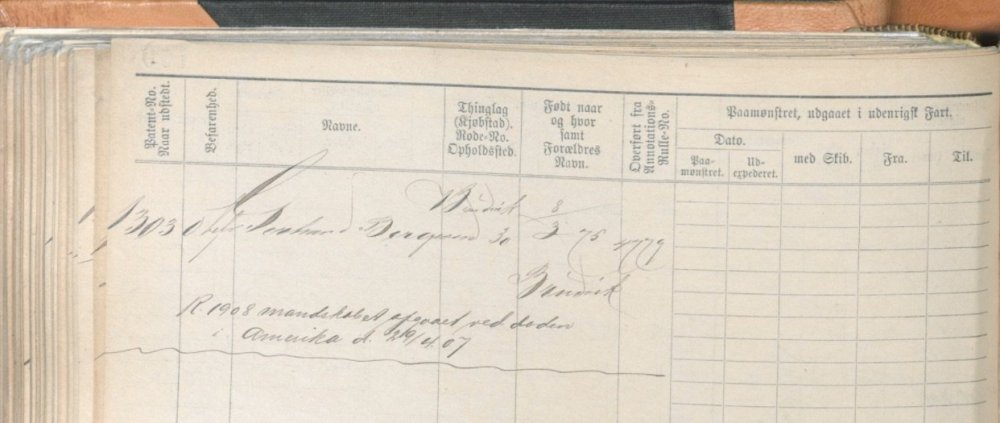 Patent-No.
Naar udstedt.
Befarenhed.
Navne.
Thinglag
(Kjøbstad).
Rode-No.
Opholdssted.
Født naar
og hvor
samt
Forældres
Navn.
Overført fra
Annotations-
Rulle-No.
Paamønstret, udgaaet i udenrigsk Fart.
Dato.
Paa-
mønstret.
Ud-
expederet.
med Skib.
Fra.
Til.
1303
8
3 75
30
R. 1908 mandskabet afgaaet ved døden
i Amerika d. 29/4 07